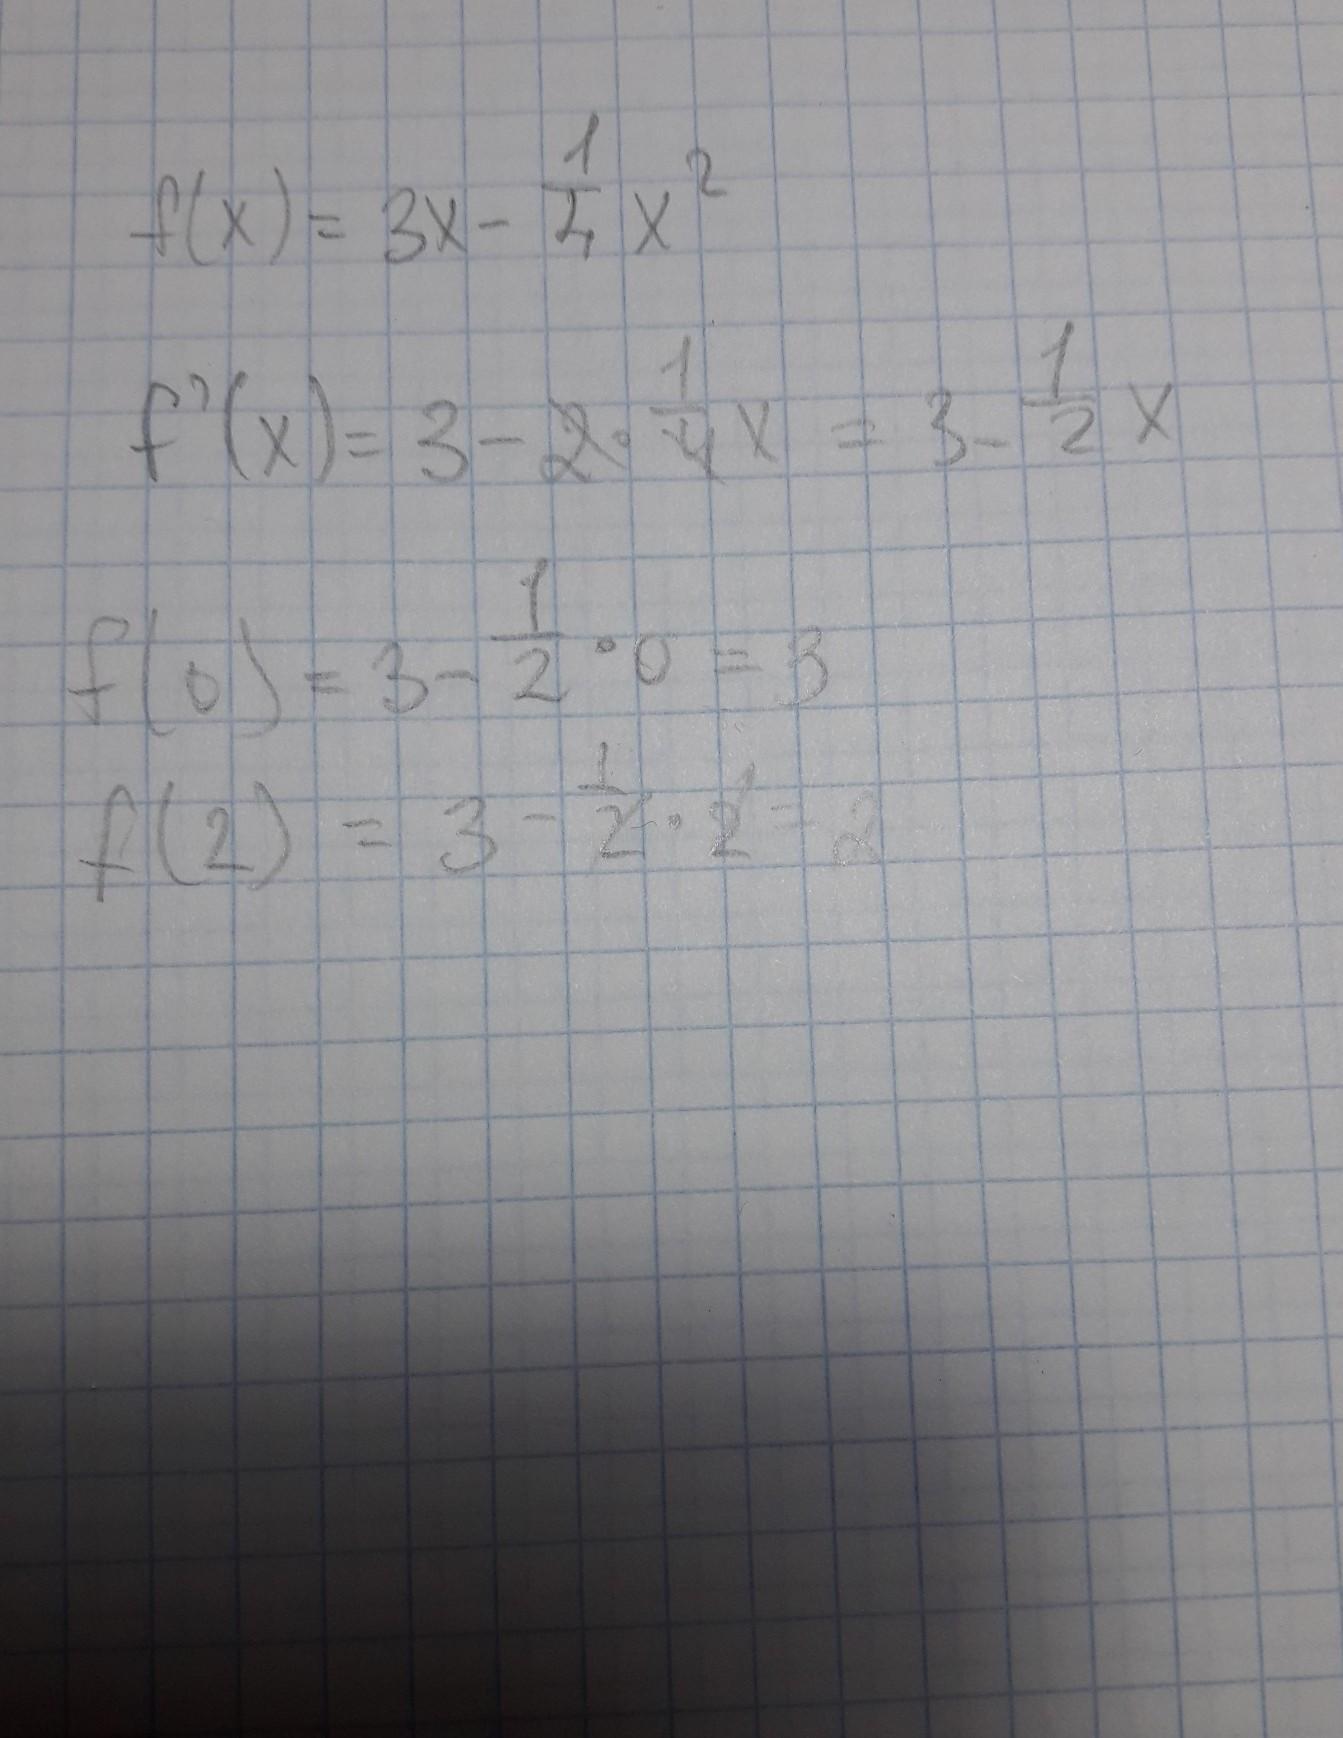 f(x) = 3x - 1/4 x²
f'(x) = 3 - 2 · 1/4 x = 3 - 1/2 x
f(0) = 3 - 1/2 · 0 = 3
f(2) = 3 - 1/2 · 2 = 2